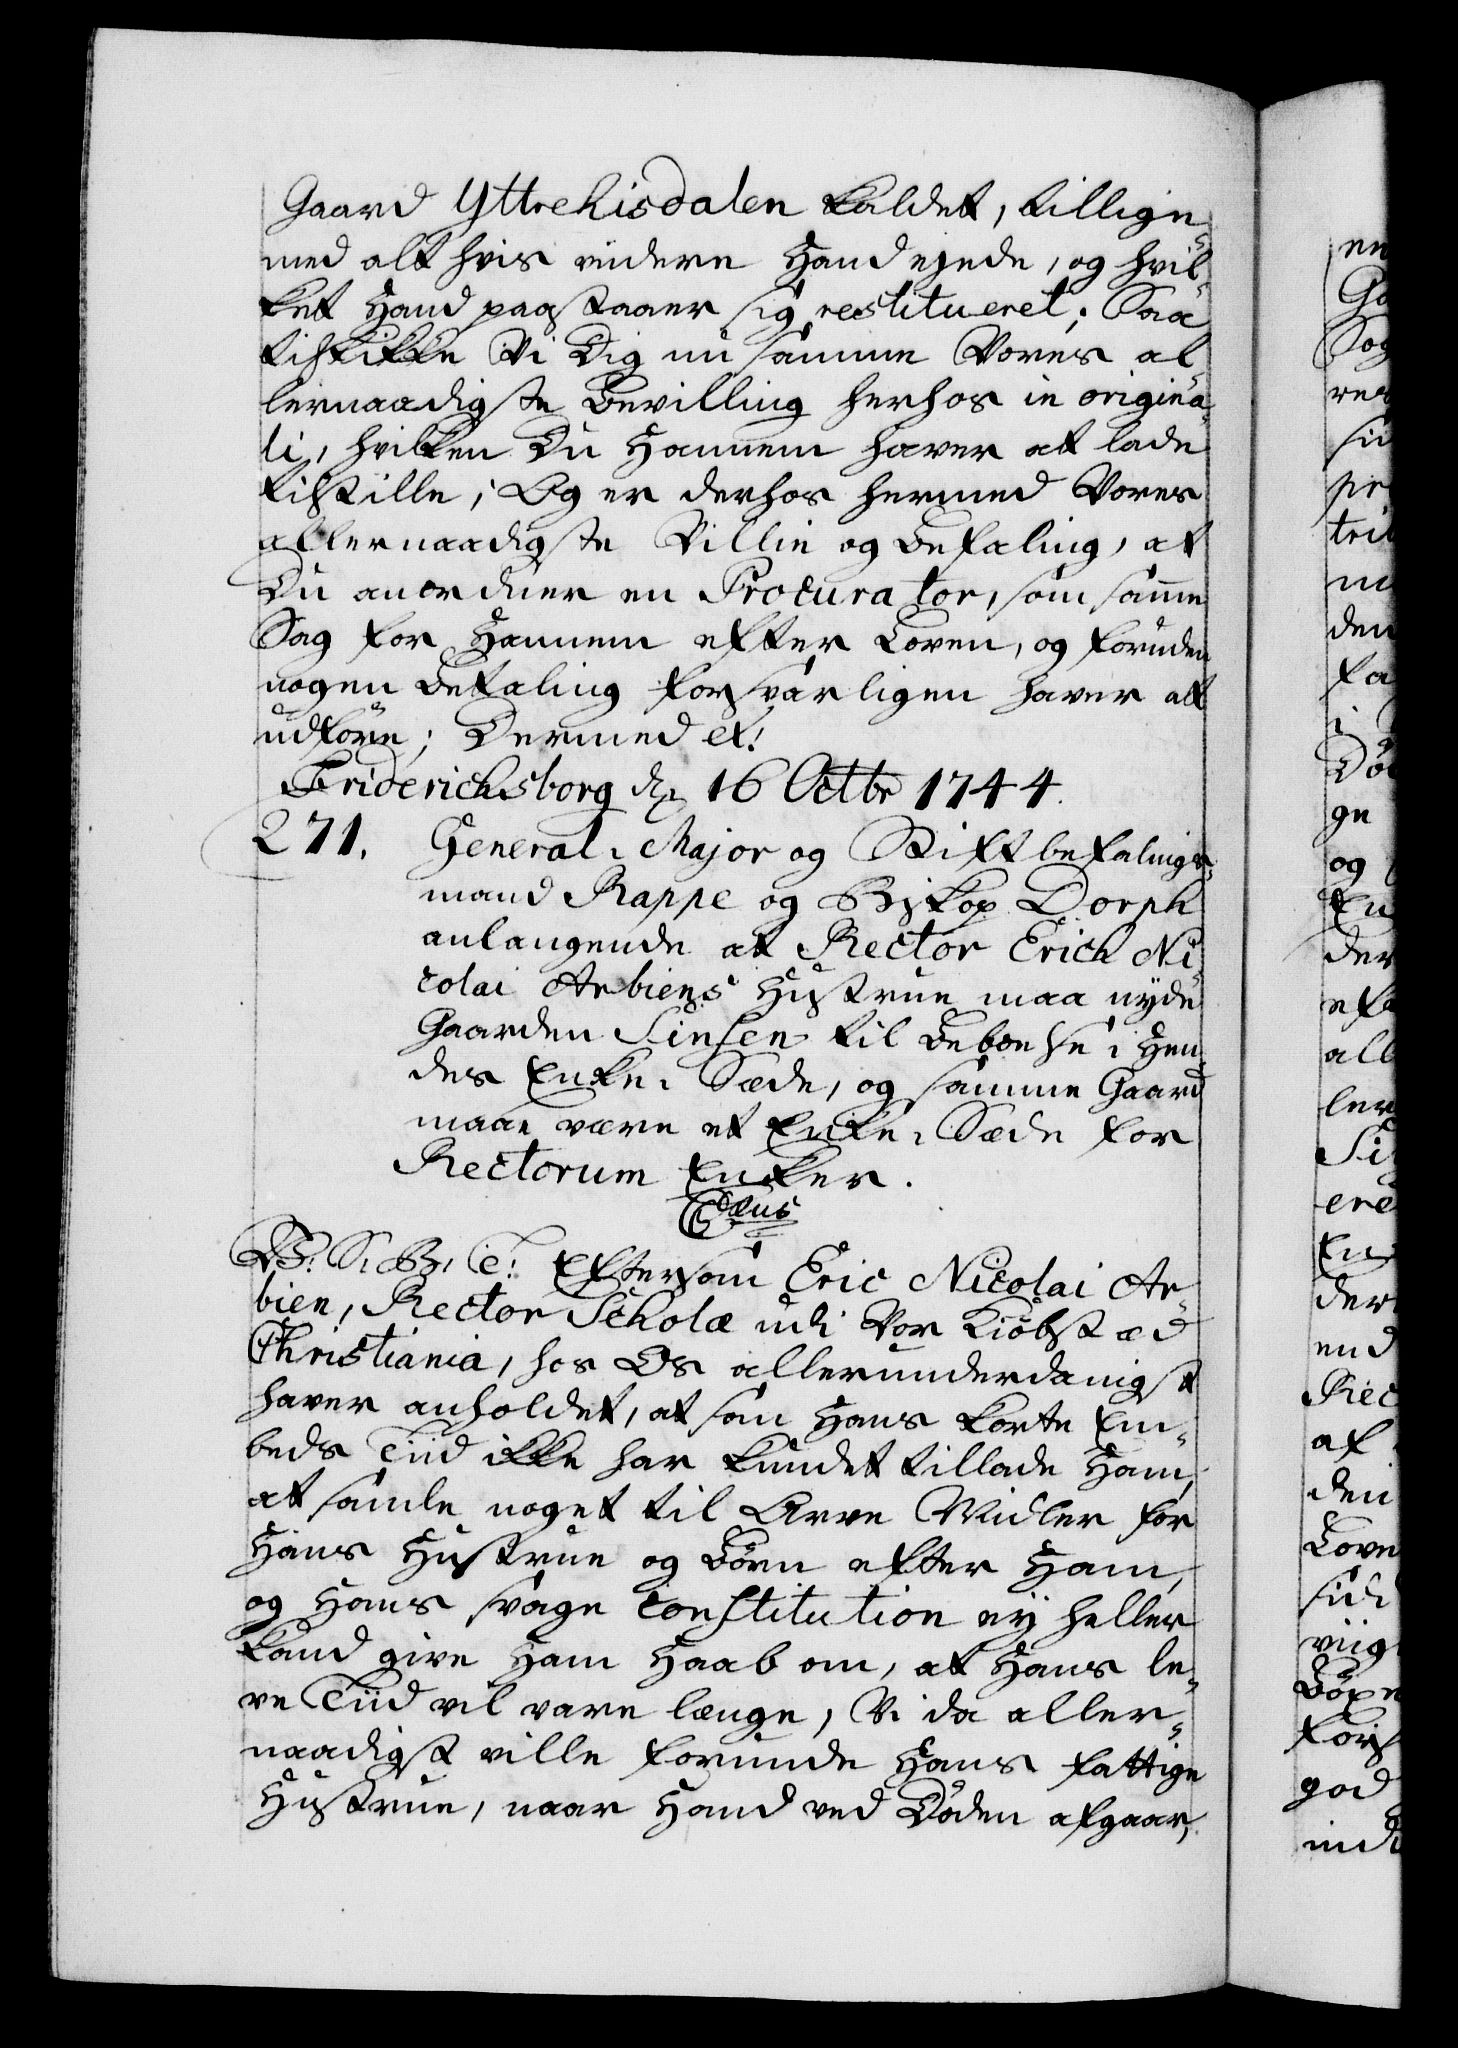 Gaard Yttrehisdalen kaldet, tillige
med alt hvis viidere Hand ejede, og hvil-
ket Hand paastaaer sig restitueret; Saa
tilskikke Vi Dig nu samme Vores al-
lernaadigste Bevilling herhos in origina-
li, hvilken Du Hannem haver at lade
tilstille; Og er derhos hermed Vores
allernaadigste Villie og Befaling, at
Du anordner en Procurator, som samme
Sag for Hannem efter Loven, og foruden
nogen Betaling forsvarligen haver at
udføre; Dermed etc:
Friderichsborg d. 16 Octbr 1744.
271. General-Major og Stiftbefalings-
mand Rappe og Biskop Dorph
anlangende at Rector Erich Ni-
colai Arbiens Hustrue maa nyde
Gaarden Sinsen til Beboelse i Hen-
des Enke-Sæde, og samme Gaard
maae være et Enke-Sæde for
Rectorum Enker.
C. 6tus
V. S. B. T: Eftersom Eric Nicolai Ar-
bien, Rector Scholæ udi Vor Kiøbstæd
Christiania, hos Os allerunderdanigst
haver anholdet, at som Hans korte Em-
beds Tiid ikke har kundet tillade Ham,
at samle noget til Arve Midler for
Hans Hustrue og Børn efter Ham,
og Hans svage Constitution ey heller
kand give Ham Haab om, at Hans le-
ve Tiid vil vare længe, Vi da aller-
naadigst ville forunde Hans fattige
Hustrue, naar Hand ved Døden afgaar,